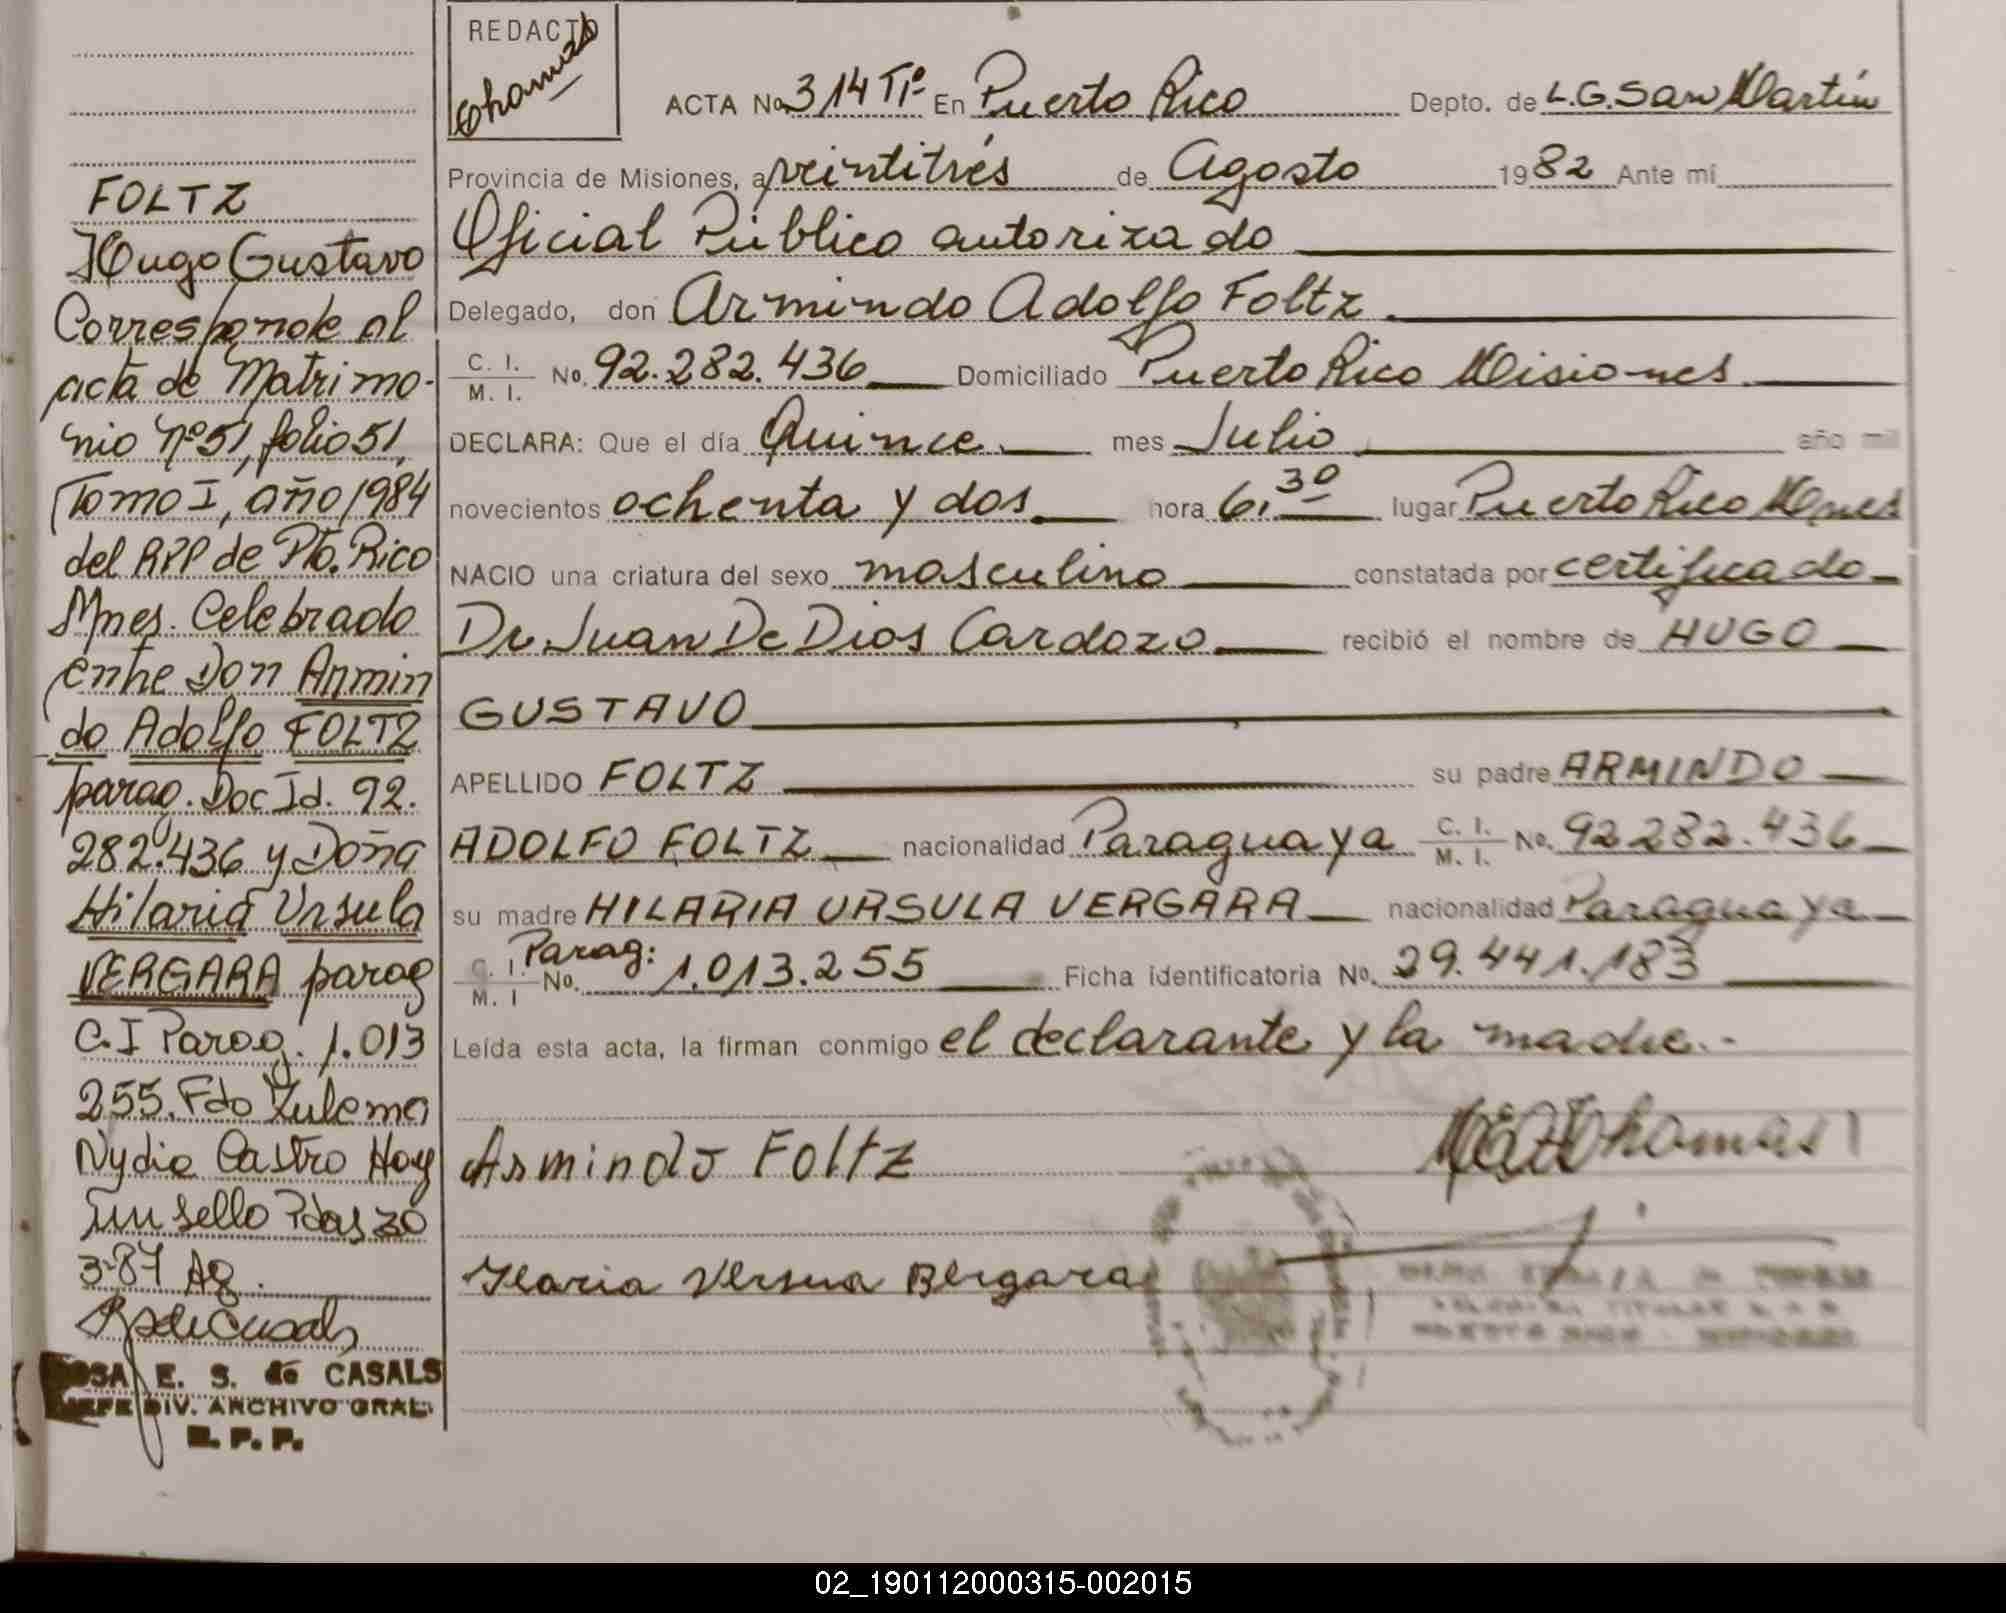 FOLTZ
Hugo Gustavo
Corresponde al
acta de Matrimo-
nio Nº 51, folio 51,
Tomo I, año 1984
del RPP de Pto. Rico
Mnes. Celebrado
entre Don Armin
do Adolfo FOLTZ
parag. Doc Id. 92.
282.436 y Doña
Hilaria Ursula
VERGARA parag
C.I Parag. 1.013
255. Fdo Zulema
Nydia Castro Hay
un sello Pdas 30
3-87 Ag.
E. S. de CASALS
JEFE DIV. ARCHIVO GRAL.
R. P. P.
REDACTO
Thomas
ACTA No 314 Tº En Puerto Rico Depto. de L.G. San Martín
Provincia de Misiones, a veintitrés de Agosto 1982 Ante mí
Oficial Público autorizado
Delegado, don Armindo Adolfo Foltz
C. I. M. I. No. 92.282.436 Domiciliado Puerto Rico Misiones
DECLARA: Que el día Quince mes Julio año mil
novecientos ochenta y dos hora 6.30 lugar Puerto Rico Mnes
NACIO una criatura del sexo masculino constatada por certificado
Dr Juan De Dios Cardozo recibió el nombre de HUGO
GUSTAVO
APELLIDO FOLTZ su padre ARMINDO
ADOLFO FOLTZ nacionalidad Paraguaya C. I. M. I. No. 92 282.436
su madre HILARIA URSULA VERGARA nacionalidad Paraguaya
C. I. M. I No. Parag: 1.013.255 Ficha identificatoria No. 29.441.183
Leída esta acta, la firman conmigo el declarante y la madre.-
Armindo Foltz
Thomas
Ilaria Versua Bergara
02_190112000315-002015